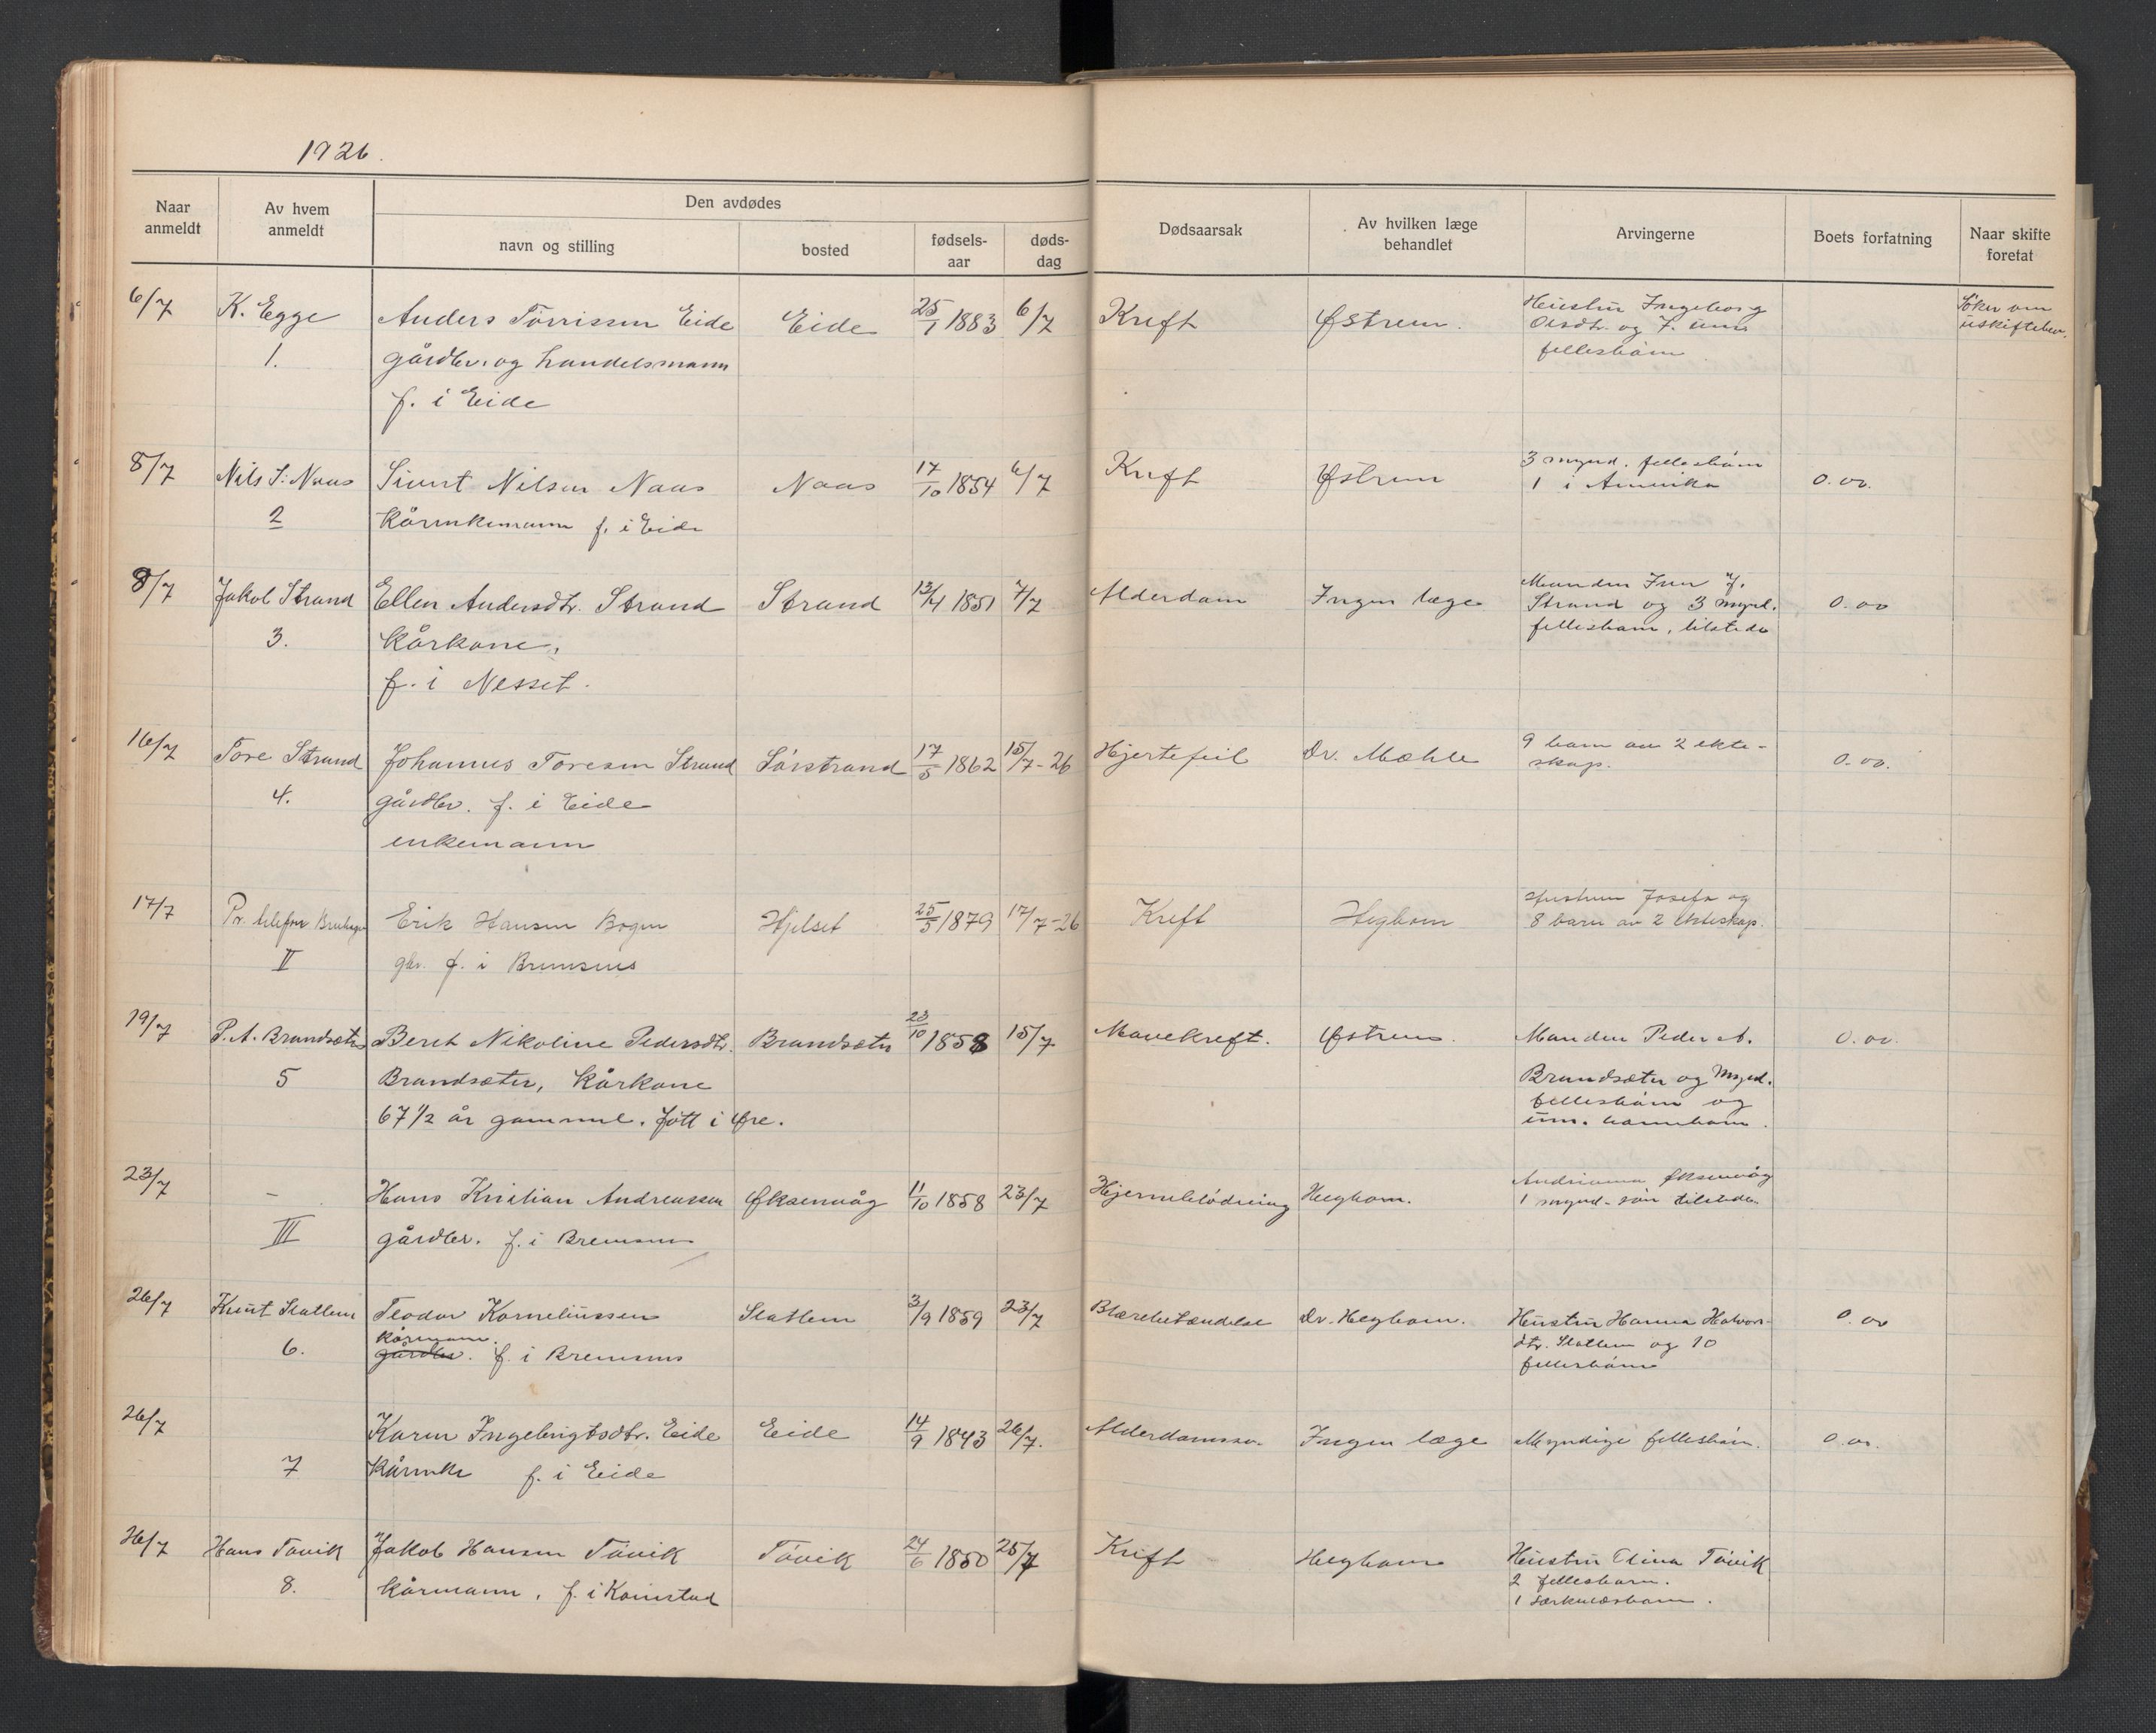 1926.
Naar anmeldt
Av hvem anmeldt
Den avdødes
navn og stilling
bosted
fødsels-aar
døds-dag
Dødsaarsak
Av hvilken læge behandlet
Arvingerne
Boets forfatning
Naar skifte foretat
6/7 K. Egge Anders Törrissen Eide Eide 25/1 1883 6/7 Kreft Østrem. Hustru Ingeborg Søker om
1. gårdbr. og handelsmann Olsdtr. og 7 um. uskiftebev.
f. i Eide fellesbarn
8/7 Nils S. Naas Sivert Nilsen Naas Naas 17/10 1854 6/7 Kreft Østrem 3 mynd. fellesbarn
2 Kårenkemann f. i Eide 1 i Amerika 0.00.
8/7 Jakob Strand Ellen Andersdtr. Strand Strand 13/4 1851 7/7 Alderdom Ingen læge Manden Iver J.
3. Kårkone, Strand og 3 mynd. 0.00
f. i Nesset. fellesbarn, tilstede
16/7 Tore Strand Johannes Toresen Strand Sörstrand 17/5 1862 15/7-26 Hjertefeil Dr. Mæhle 9 barn av 2 ekte-
4. gårdbr. f. i Eide skap. 0.00.
enkemann
17/7 Pr. telefon Erik Hansen Bogen Hjelset 25/5 1879 17/7-26 Kreft Hegbom Hustrun Josefa og
II gbr. f. i Bremsnes 8 barn av 2 ekteskap.
19/7 P. A. Brandsæter Beret Nikoline Pedersdtr. Brandsæter 23/10 1858 15/7 Mavekreft. Østrem. Manden Peder A. 0.00.
5 Brandsæter, Kårkone Brandsæter og mynd.
67 1/2 år gammel. född i Øre. fellesbarn og
um. barnebarn.
23/7 - Hans Kristian Andreassen Øksenvåg 11/10 1858 23/7 Hjerneblödning Hegbom. Andrianna Øksenvåg
III gårdbr. f. i Bremsnes 1 mynd. sön tilstede
26/7 Knut Slatlem Teodor Korneliussen Slatlem 3/9 1859 23/7 Blærebetændelse Dr. Hegbom. Hustru Hanna Halvors- 0.00
6. kårmann. gårdbr. f. i Bremsnes dtr. Slatlem og 10
fellesbarn
26/7 Karen Ingebrigtsdtr. Eide Eide 14/9 1843 26/7. Alderdomssv. Ingen læge Myndige fellesbarn. 0.00.
7 Kårenke f. i Eide
26/7 Hans Tövik Jakob Hansen Tövik Tövik 24/6 1850 25/7 Kreft Hegbom Hustru Elina Tövik
8. kårmann. f. i Kornstad 2 fellesbarn.
1 særkulsbarn.